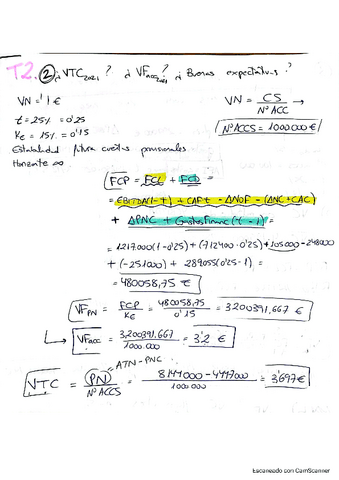 T2. ② ¿VTC2021? ¿VFacc2021? ¿Buenas expectativas?
VN = 1 € VN = CS / Nº ACC →
t = 25% = 0'25
Ke = 15% = 0'15 Nº ACCS = 1000000 €
Estabilidad futura cuentas previsionales
Horizonte ∞
FCP = ECL + FCD =
= EBITDA(1-t) + CAF·t - ΔNOF - (ΔNC+CAC)
+ ΔPNC + GastosFinanc(t-1) =
= 1217000(1-0'25) + (712400·0'25) + 105000 - 248000
+ (-251000) + 289055(0'25-1) =
= 480058,75 €
VF PN = FCP / Ke = 480058'75 / 0'15 = 3200391,667 €
↳ VFacc = 3,200391,667 / 1000.000 = 3'2 €
= ATN - PNC
VTC = PN / Nº ACCS = 8144000 - 4447000 / 1000000 = 3'697 €
Escaneado con CamScanner